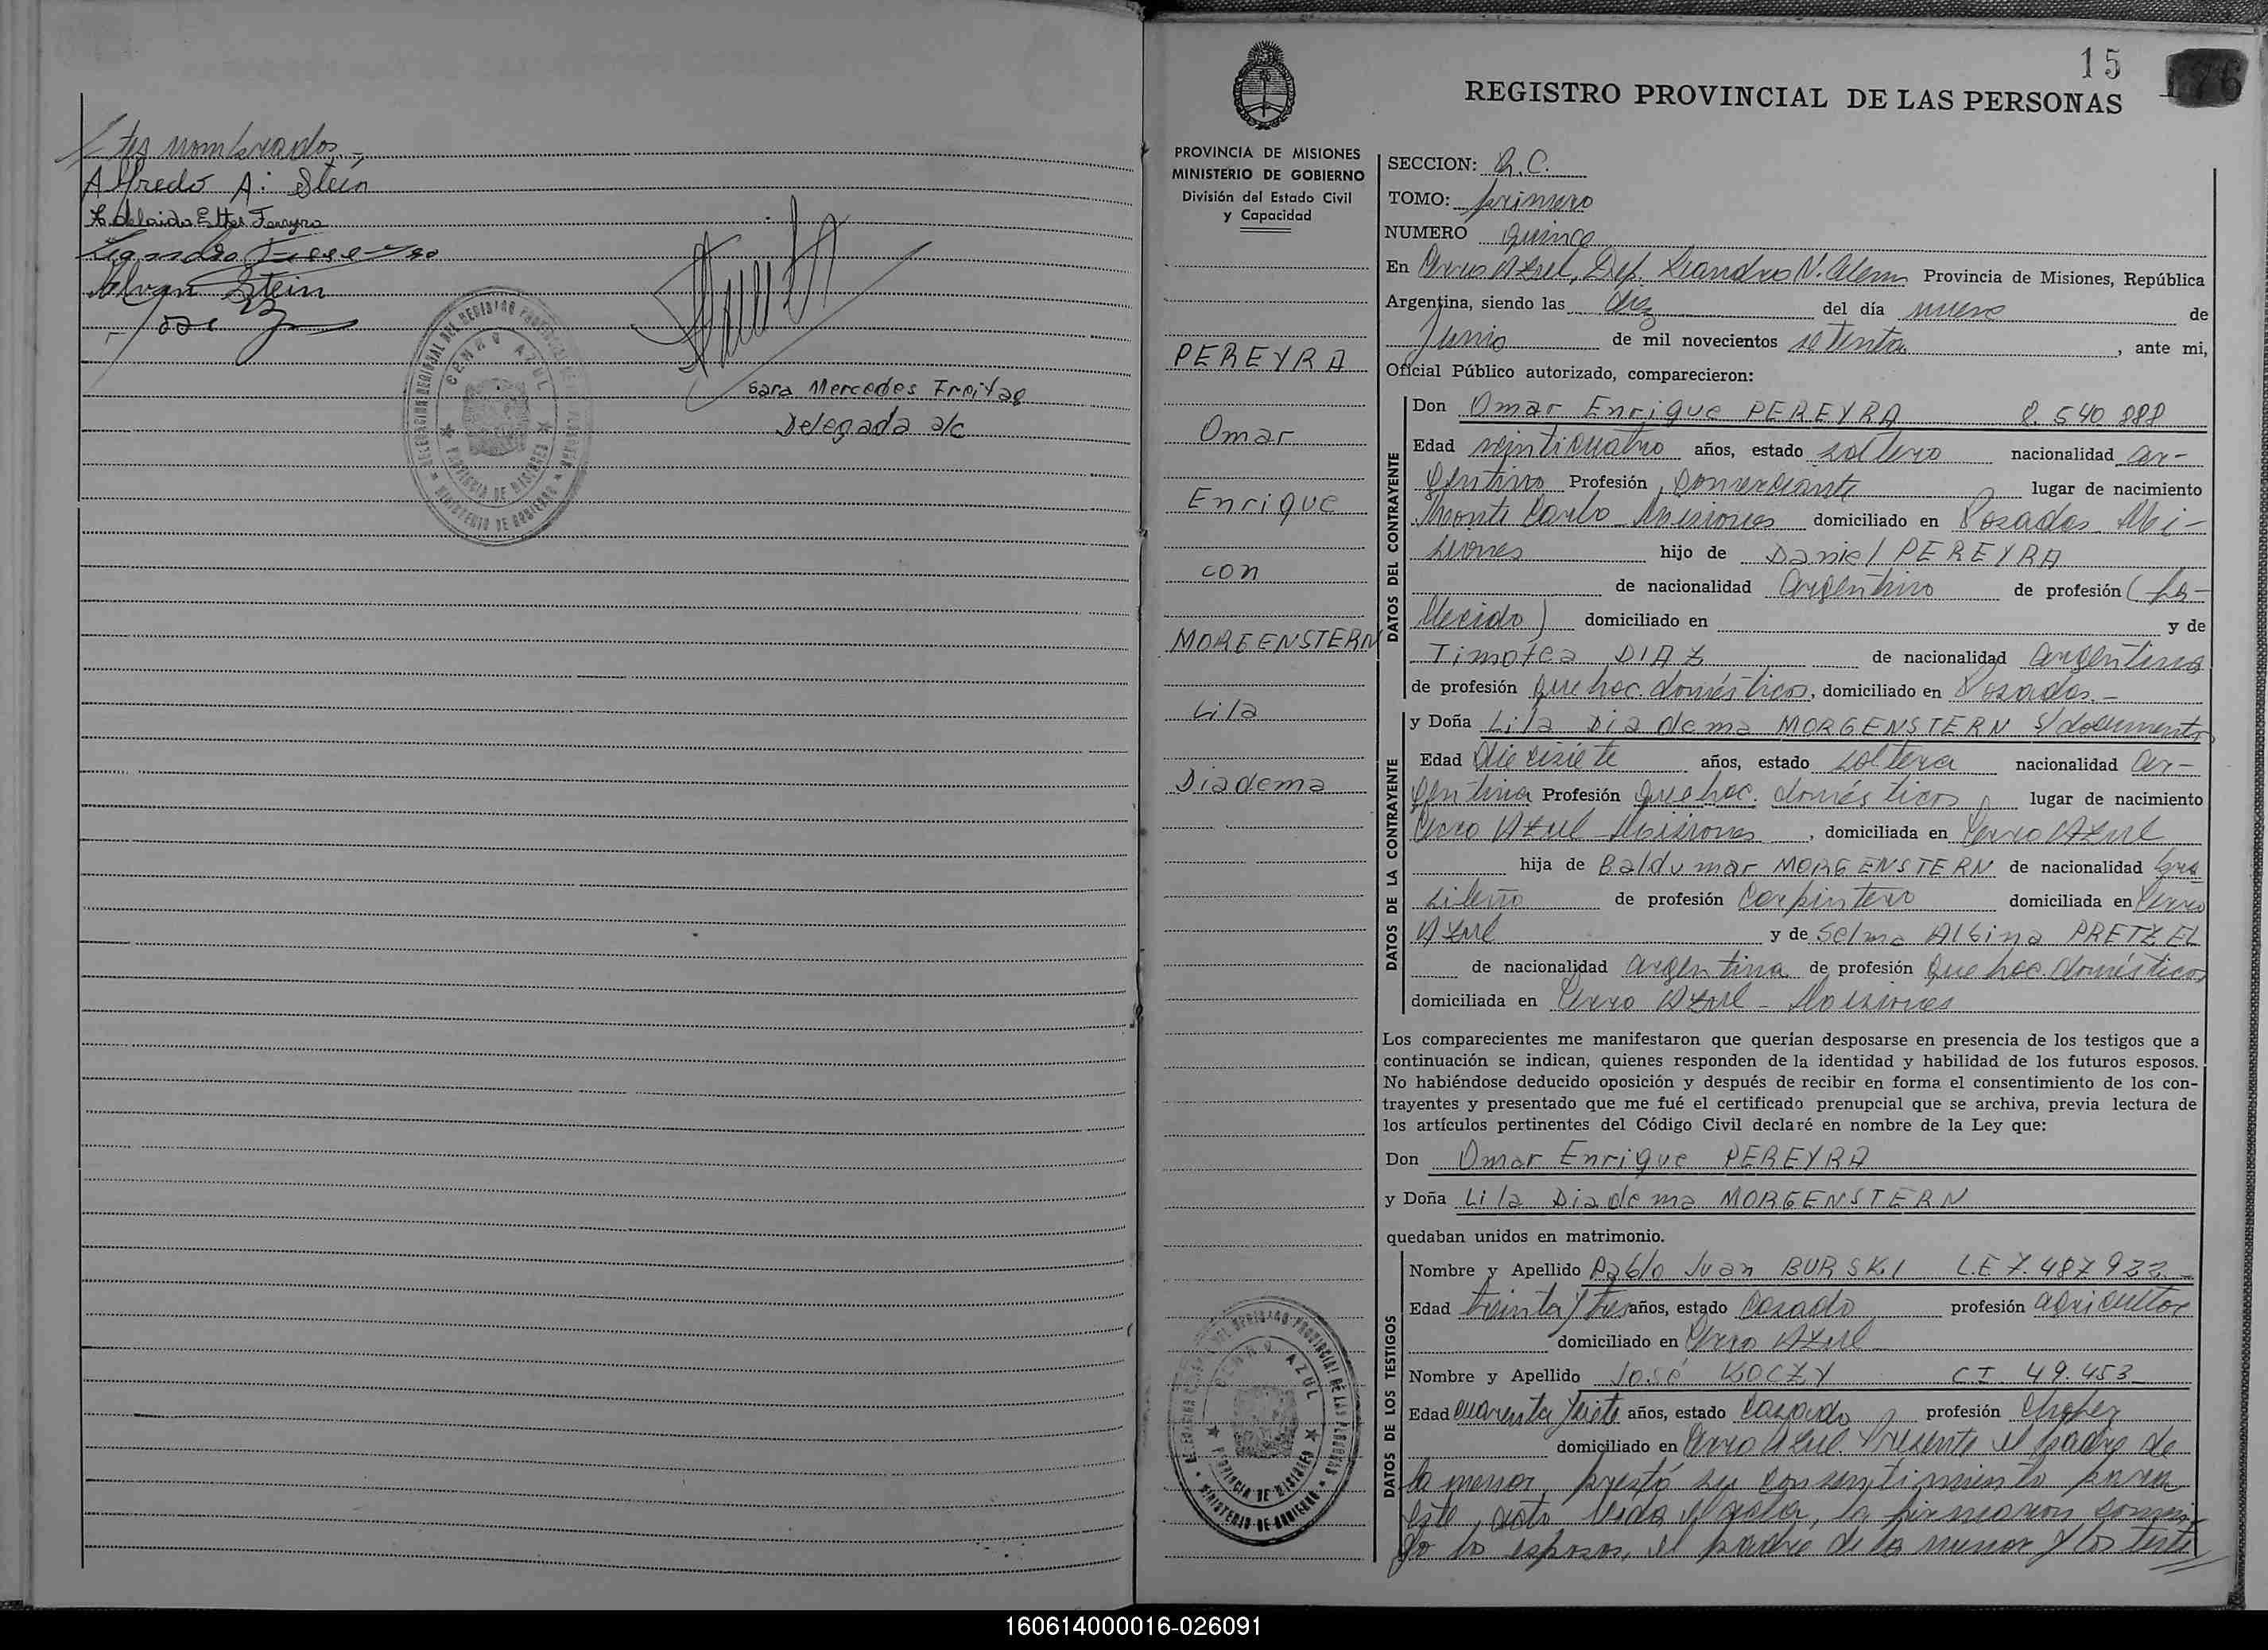 tes nombrados.-
Alfredo A. Stein
Adelaida Esther Ferreyra
Stein
Jose
DELEGACION REGIONAL DEL REGISTRO PROVINCIAL DE LAS PERSONAS
CERRO AZUL
PROVINCIA DE MISIONES
MINISTERIO DE GOBIERNO
Sara Mercedes Freitag
Delegada a/c
15
176
REGISTRO PROVINCIAL DE LAS PERSONAS
PROVINCIA DE MISIONES
MINISTERIO DE GOBIERNO
División del Estado Civil
y Capacidad
PEREYRA
Omar
Enrique
con
MORGENSTERN
Lila
Diadema
SECCION: R.C.
TOMO: primero
NUMERO quince
En Cerro Azul, Dep. Leandro N. Alem Provincia de Misiones, República
Argentina, siendo las diez del día nueve de
Junio de mil novecientos setenta, ante mi,
Oficial Público autorizado, comparecieron:
DATOS DEL CONTRAYENTE
Don Omar Enrique PEREYRA 8.540 888
Edad veinticuatro años, estado soltero nacionalidad ar-
gentino Profesión Comerciante lugar de nacimiento
Monte Carlo Misiones domiciliado en Posadas Mi-
siones hijo de Daniel PEREYRA
de nacionalidad argentino de profesión (fa-
llecido) domiciliado en y de
Timotea DIAZ de nacionalidad argentina
de profesión quehac. domésticos, domiciliado en Posadas.-
DATOS DE LA CONTRAYENTE
y Doña Lila Diadema MORGENSTERN s/documento
Edad diecisiete años, estado soltera nacionalidad ar-
gentina Profesión quehac. domésticos, lugar de nacimiento
Cerro Azul Misiones, domiciliada en Cerro Azul
hija de Baldumar MORGENSTERN de nacionalidad bra
sileño de profesión Carpintero domiciliada en Cerro
Azul y de Selma Albina PRETZEL
de nacionalidad argentina de profesión Quehac. domésticos
domiciliada en Cerro Azul - Misiones
Los comparecientes me manifestaron que querían desposarse en presencia de los testigos que a
continuación se indican, quienes responden de la identidad y habilidad de los futuros esposos.
No habiéndose deducido oposición y después de recibir en forma el consentimiento de los con-
trayentes y presentado que me fué el certificado prenupcial que se archiva, previa lectura de
los artículos pertinentes del Código Civil declaré en nombre de la Ley que:
Don Omar Enrique PEREYRA
y Doña Lila Diadema MORGENSTERN
quedaban unidos en matrimonio.
DATOS DE LOS TESTIGOS
Nombre y Apellido Pablo Juan BURSKI L.E 7.487 922
Edad treinta y tres años, estado Casado profesión agricultor
domiciliado en Cerro Azul
Nombre y Apellido José KOCZY C I 49.453
Edad cuarenta y siete años, estado Casado profesión Chofer
domiciliado en Cerro Azul. Presente el padre de
la menor, prestó su consentimiento para
este acto leida el acta, la firmaron conmi-
go lo esposos, el padre de la menor y los testi
DELEGACION REGIONAL DEL REGISTRO PROVINCIAL DE LAS PERSONAS
CERRO AZUL
PROVINCIA DE MISIONES
MINISTERIO DE GOBIERNO
160614000016-026091